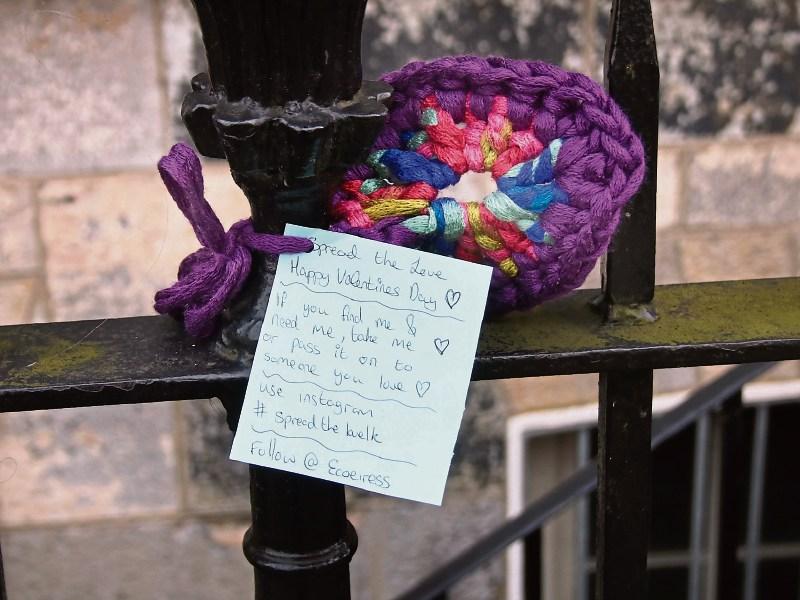 Spread the Love
Happy Valentines Day ♡
If you find me &
need me, take me ♡
or pass it on to
someone you love ♡
use instagram
# Spread the luvlk
Follow @ Ecoeiress